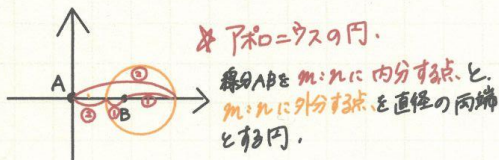 アポロニウスの円.
線分ABを m:n に 内分する点、と、
m:nに外分する点、を直径の両端
とする円.
A
B
②
②
①
①